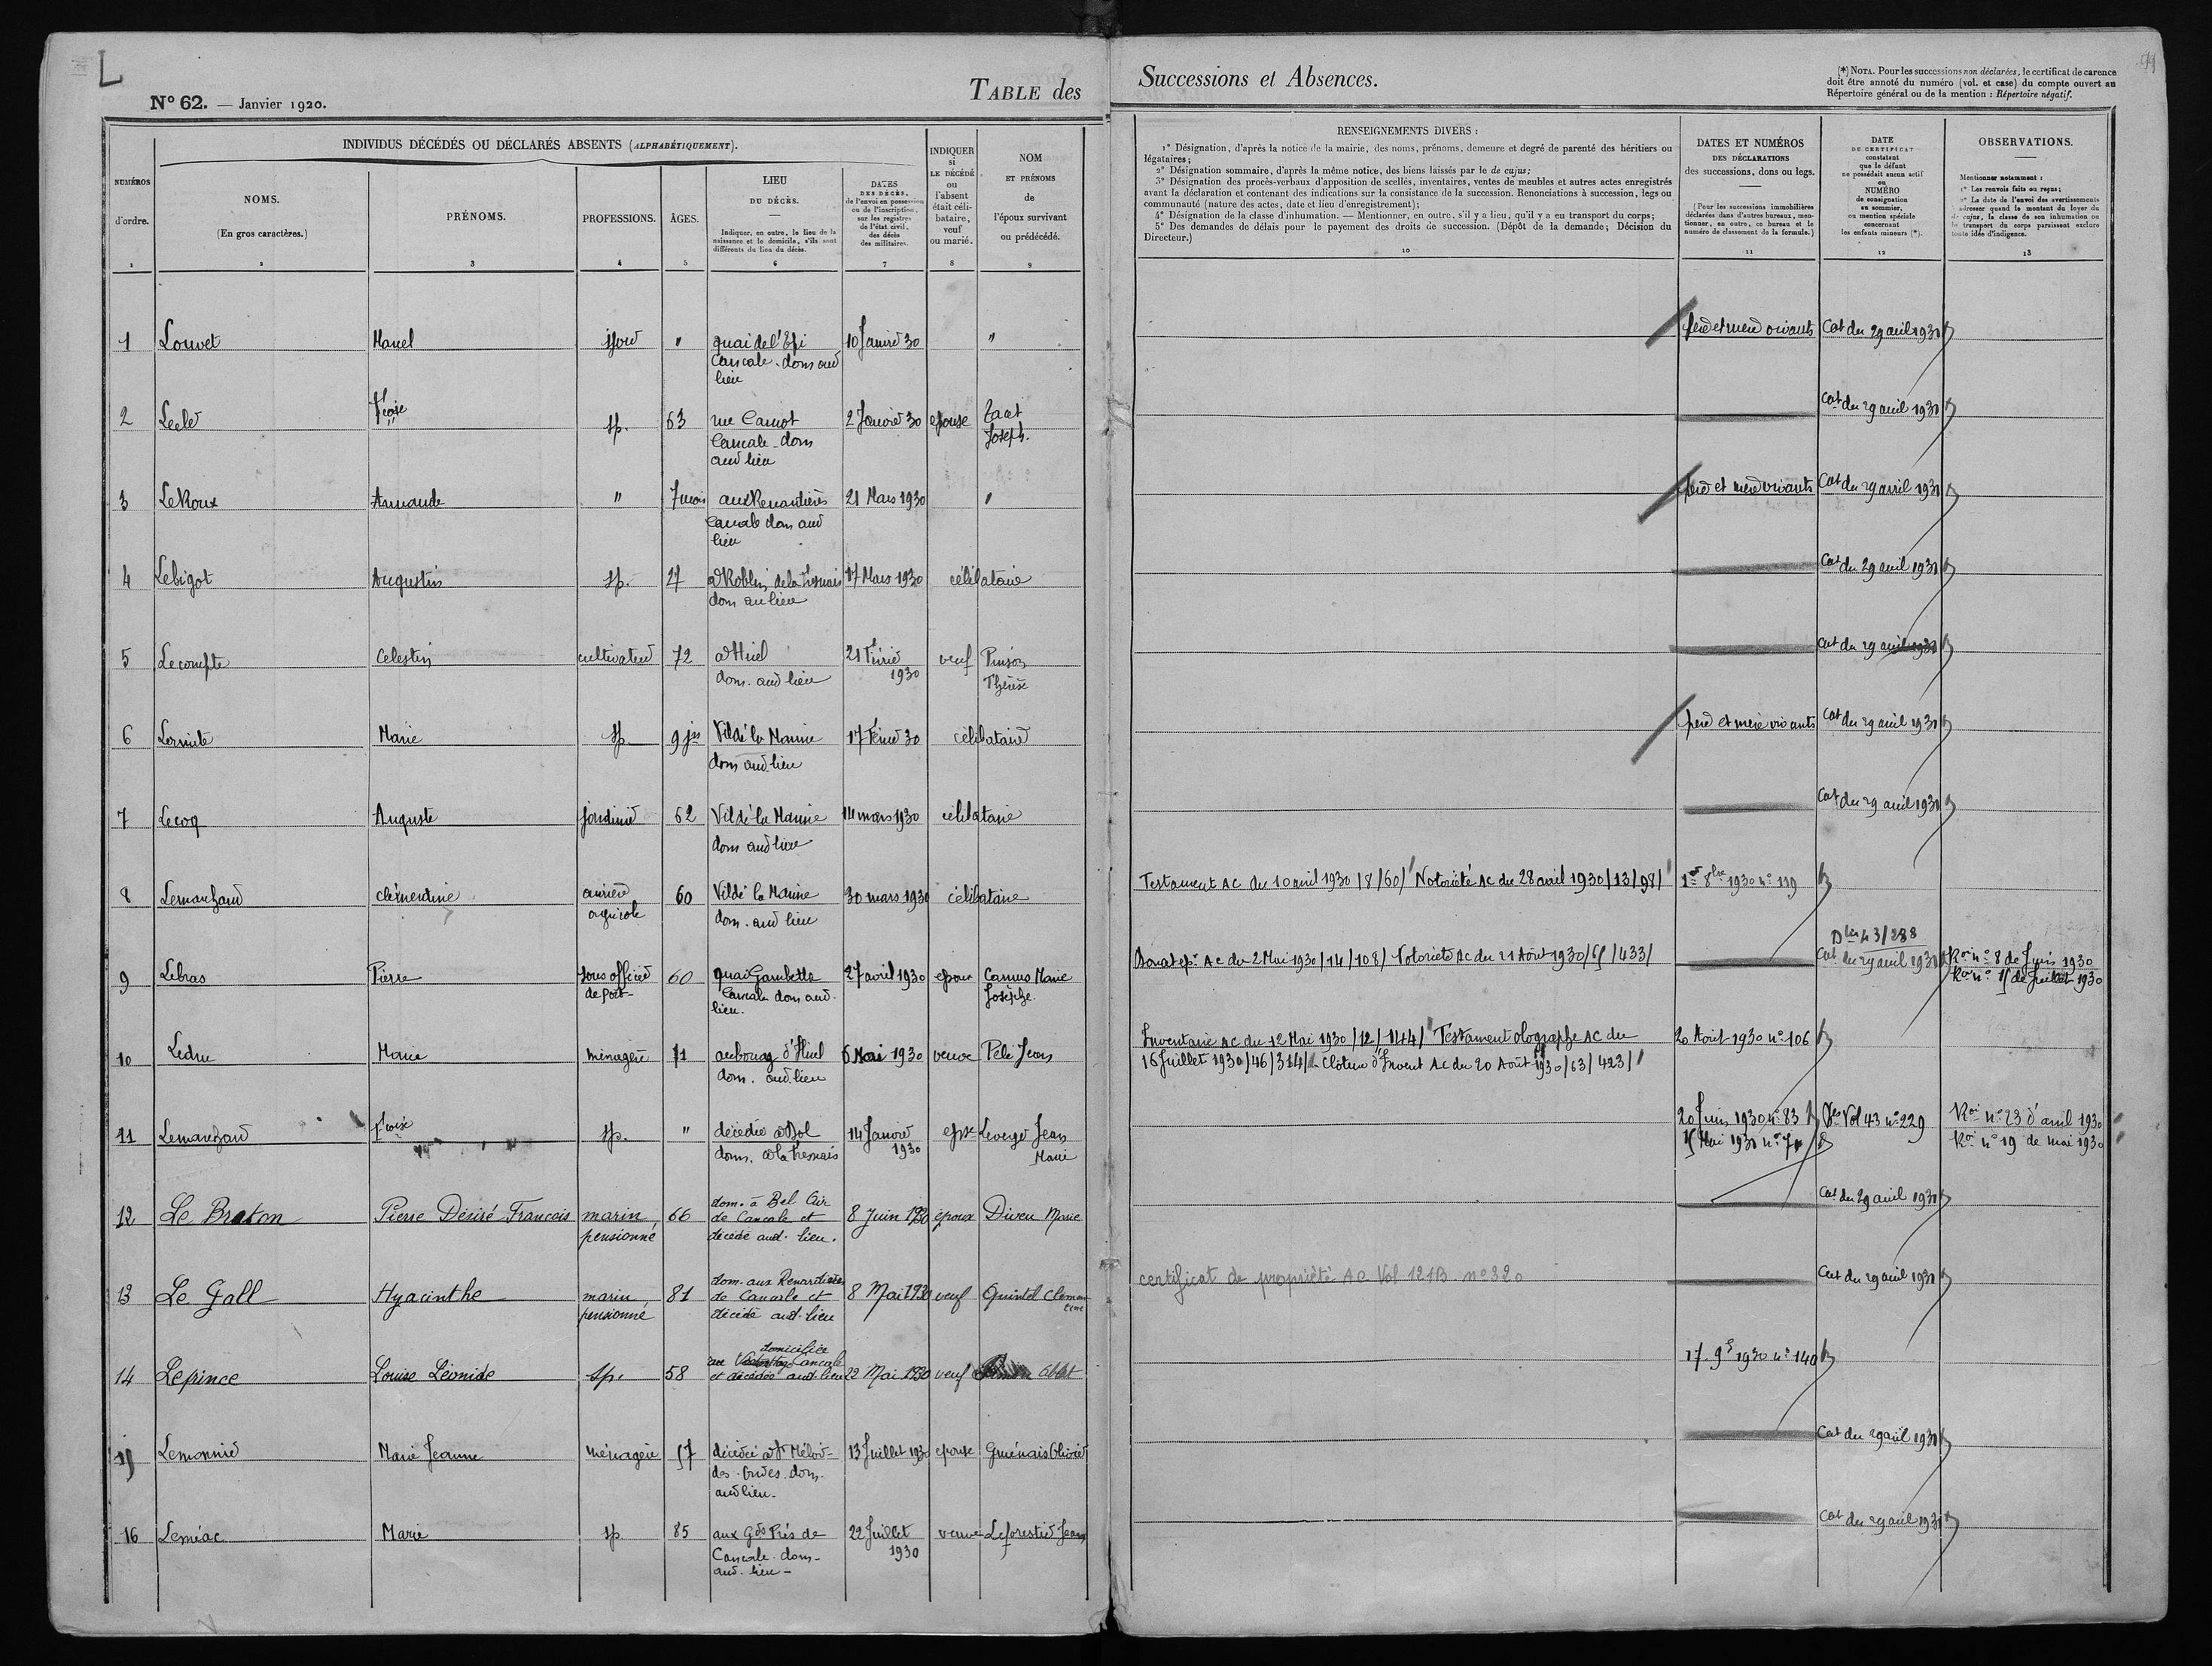 L
99
N° 62. — Janvier 1920.
TABLE des Successions et Absences.
(*) NOTA. Pour les successions non déclarées, le certificat de carence
doit être annoté du numéro (vol. et case) du compte ouvert au
Répertoire général ou de la mention : Répertoire négatif.
INDIVIDUS DÉCÉDÉS OU DÉCLARÉS ABSENTS (ALPHABÉTIQUEMENT).
NUMÉROS
d'ordre.
1
NOMS.
(En gros caractères.)
2
PRÉNOMS.
3
PROFESSIONS.
4
ÂGES.
5
LIEU
DU DÉCÈS.
Indiquer, en outre, le lieu de la
naissance et le domicile, s'ils sont
différents du lieu du décès.
6
DATES
DES DÉCÈS,
de l'envoi en possession
ou de l'inscription,
sur les registres
de l'état civil,
des décès
des militaires.
7
INDIQUER
si
LE DÉCÉDÉ
ou
l'absent
était céli-
bataire,
veuf
ou marié.
8
NOM
ET PRÉNOMS
de
l'époux survivant
ou prédécédé.
9
RENSEIGNEMENTS DIVERS :
1° Désignation, d'après la notice de la mairie, des noms, prénoms, demeure et degré de parenté des héritiers ou
légataires;
2° Désignation sommaire, d'après la même notice, des biens laissés par le de cujus;
3° Désignation des procès-verbaux d'apposition de scellés, inventaires, ventes de meubles et autres actes enregistrés
avant la déclaration et contenant des indications sur la consistance de la succession. Renonciations à succession, legs ou
communauté (nature des actes, date et lieu d'enregistrement);
4° Désignation de la classe d'inhumation. — Mentionner, en outre, s'il y a lieu, qu'il y a eu transport du corps;
5° Des demandes de délais pour le payement des droits de succession. (Dépôt de la demande; Décision du
Directeur.)
10
DATES ET NUMÉROS
DES DÉCLARATIONS
des successions, dons ou legs.
(Pour les successions immobilières
déclarées dans d'autres bureaux, men-
tionner, en outre, ce bureau et le
numéro de classement de la formule.)
11
DATE
DU CERTIFICAT
constatant
que le défunt
ne possédait aucun actif
ou
NUMÉRO
de consignation
au sommier,
ou mention spéciale
concernant
les enfants mineurs (*).
12
OBSERVATIONS.
Mentionner notamment :
1° Les renvois faits ou reçus;
2° La date de l'envoi des avertissements
à adresser quand le montant du loyer du
de cujus, la classe de son inhumation ou
le transport du corps paraissent exclure
toute idée d'indigence.
13
1 Louvet " quai de l'Epi 10 Janvier 30 " pere et mere vivants Cat du 29 avril 1931
Cancale. dom aud
lieu
2 sp. 63 rue Carnot 2 Janvier 30 epouse Cat du 29 avril 1931
Cancale. dom Joseph.
aud lieu
3 LeRoux " 7 mois aux Renardières 21 Mars 1930 " pere et mere vivants Cat du 29 avril 1931
Cancale dom aud
lieu
4 Lebigot Augustin sp. 27 17 Mars 1930 célibataire Cat du 29 avril 1931
dom au lieu
5 Lecompte Celestin cultivateur 72 21 Février veuf Pinson Cat du 29 avril 1931
dom. aud lieu 1930 Thérèse
6 Marie sp 9 jrs Vildé la Marine 17 Février 30 célibataire pere et mere vivants Cat du 29 avril 1931
dom aud lieu
7 Lecoq Auguste jardinier 62 Vildé la Marine 14 mars 1930 célibataire Cat du 29 avril 1931
dom aud lieu
8 Lemarchand clémentine ouvrière 60 Vildé la Marine 30 mars 1930 célibataire Testament AC du 10 avril 1930 /8/60/ Notoriété AC du 28 avril 1930/13/98/ 1er 8bre 1930 n° 119
agricole dom. aud lieu
9 Lebras Pierre sous officier 60 quai Gambetta 27 avril 1930 epoux Camus Marie AC du 2 Mai 1930/14/108/ Notoriété AC du 21 Août 1930/65/433/ 43/288
de port Cancale dom aud. Josèphe Cat du 29 avril 1931 n° 8 de Juin 1930
lieu. n° 15 de Juillet 1930
10 Ledru Marie ménagère 71 au bourg d'Hirel 6 Mai 1930 veuve Jean Inventaire AC du 12 Mai 1930/12/144/ Testament olographe AC du 20 Août 1930 n° 106
dom. aud. lieu 16 Juillet 1930/46/314/ Cloture d'Invent AC du 20 Août 1930/63/423/
11 Lemarchand sp. " décédée à Dol 14 Janvier epse Jean 20 Juin 1930 n° 83 Vol 43 n° 229 n° 23 d'avril 1930
dom. à la Fresnais 1930 Marie 15 Mai 1931 n° 74 n° 19 de mai 1930
12 Le Breton Pierre Désiré Francois marin 66 dom. à Bel Air 8 Juin 1930 époux Diveu Marie Cat du 29 avril 1931
pensionné de Cancale et
décédé aud. lieu.
13 Le Gall Hyacinthe marin 81 dom. aux Renardières 8 Mai 1930 veuf Quintel Clemen- certificat de propriété AC Vol 121B n° 320 Cat du 29 avril 1931
pensionné de Cancale et tine
décédé aud. lieu
14 Lepince Louise Léonide sp. 58 domiciliée 22 Mai 1930 veuf Abbt 17. 9bre 1930 n° 140
Cancale
et décédée aud. lieu
15 Lemonnier Marie Jeanne ménagère 57 décédée à St Méloir- 13 Juillet 1930 epouse Gruénais Olivier Cat du 29 avril 1931
des-Ondes. dom.
aud lieu.
16 Leméac Marie sp 85 aux Gds Prés de 22 Juillet veuve Leforestier Jean Cat du 29 avril 1931
Cancale. dom- 1930
aud. lieu-